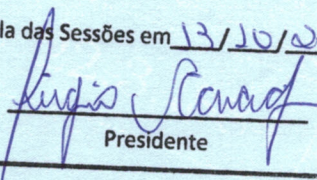 la das Sessões em 13/10/2
Presidente